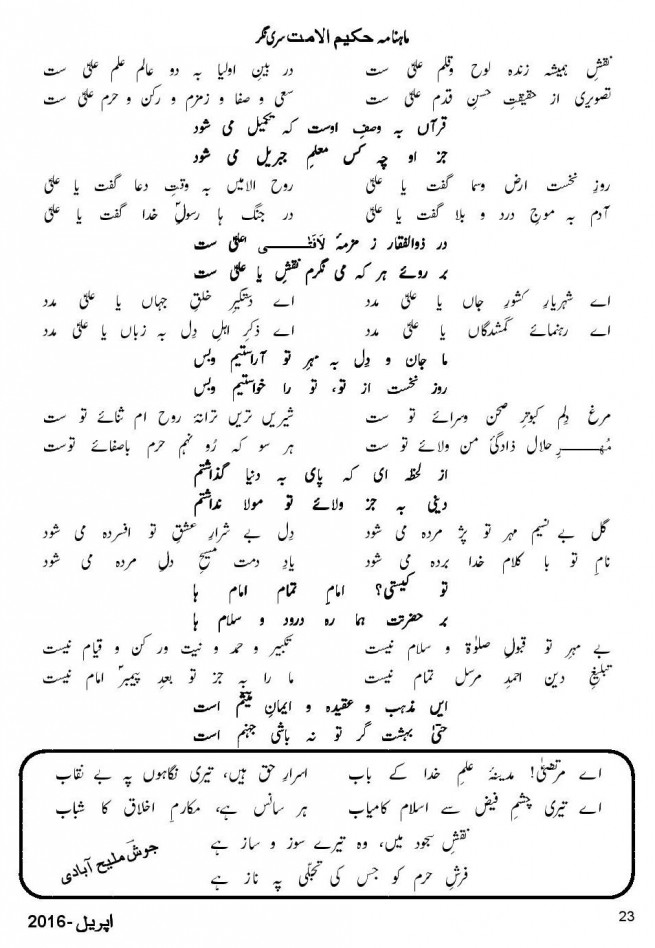 ماہنامہ حکیم الامت سری نگر
نقشِ ہمیشہ زندہ لوح وقلم علیؑ ست در بینِ اولیا بہ دو عالم علم علیؑ ست
تصویری از حقیقتِ حسنِ قدم علیؑ ست سعی و صفا و زمزم و رکن و حرم علیؑ ست
قرآں بہ وصفِ اوست کہ تکمیل می شود
جز او چہ کس معلمِ جبریل می شود
روزِ نخست ارض وسما گفت یا علیؑ روح الامیں بہ وقتِ دعا گفت یا علیؑ
آدم بہ موجِ درد و بلا گفت یا علیؑ در جنگ ہا رسولِؐ خدا گفت یا علیؑ
در ذوالفقار ز مزمۂ لَافَتٰی اعلیؑ ست
بر روئے ہر کہ می نگرم نقشِ یا علیؑ ست
اے شہریارِ کشورِ جاں یا علیؑ مدد اے دستگیرِ خلقِ جہاں یا علیؑ مدد
اے رہنمائے گمشدگاں یا علیؑ مدد اے ذکرِ اہلِ دِل بہ زباں یا علیؑ مدد
ما جان و دِل بہ مہرِ تو آراستیم وبس
روز نخست از تو، تو را خواستیم وبس
مرغ دِلم کبوترِ صحن وسرائے تو ست شیریں تریں ترانۂ روح ام ثنائے تو ست
مُہرِ حلال ذادگیٔ من ولائے تو ست ہر سو کہ رُو نہم حرم باصفائے توست
از لحظہ ای کہ پای بہ دنیا گذاشتم
دینی بہ جز ولائے تو مولا نداشتم
گل بے نسیم مہر تو پژ مردہ می شود دِل بے شرارِ عشقِ تو افسردہ می شود
نامِ تو با کلام خدا بردہ می شود یادِ دمت مسیحِ دلِ مردہ می شود
تو کیستی؟ امامِ تمام امام ہا
بر حضرتت ہما رہ درود و سلام ہا
بے مہرِ تو قبول صلوٰۃ و سلام نیست تکبیر و حمد و نیت ور کن و قیام نیست
تبلیغِ دین احمدِ مرسل تمام نیست ما را بہ جز تو بعدِ پیمبرؐ امام نیست
ایں مذہب و عقیدہ و ایمانِ میثم است
حتیٰ بہشت گر تو نہ باشی جہنم است
اے مرتضیٰ! مدینۂ علمِ خدا کے باب اسرارِ حق ہیں، تیری نگاہوں پہ بے نقاب
اے تیری چشمِ فیض سے اسلام کامیاب ہر سانس ہے، مکارمِ اخلاق کا شباب
نقشِ سجود میں، وہ تیرے سوز و ساز ہے
فرشِ حرم کو جس کی تجلّی پہ ناز ہے
جوشؔ ملیح آبادی
اپریل -2016
23